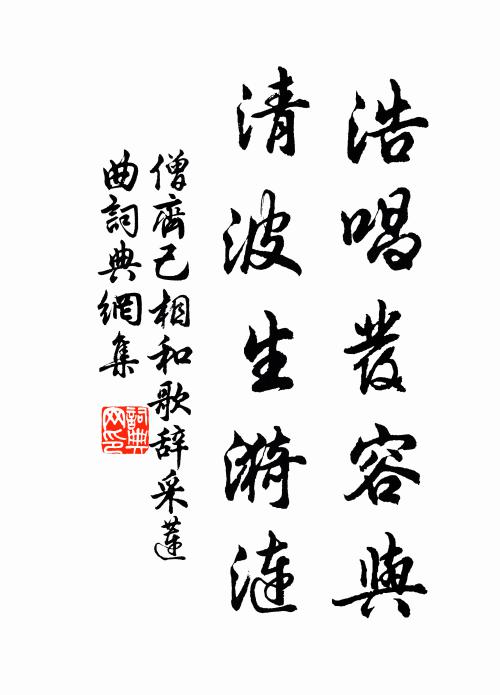 浩唱發容與
清波生漪漣
僧齊己相和歌辞采蓮
曲詞典網集
詞典网印